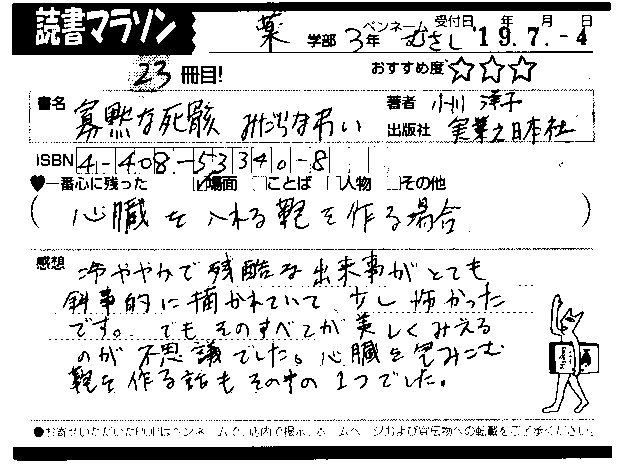 読書マラソン 薬 学部 3年 ペンネーム むさし 受付日 '19.7.-4 年 月 日
23 冊目! おすすめ度 ☆☆☆
書名 寡黙な死骸 みだらな弔い 著者 小川 洋子
出版社 実業之日本社
ISBN 4-408-53340-8
♥一番心に残った ☑場面 □ことば □人物 □その他
( 心臓を入れる鞄を作る場合 )
感想 冷ややかで残酷な出来事がとても
叙事的に描かれていて、少し怖かった
です。でもそのすべてが美しくみえる
のが不思議でした。心臓を包みこむ
鞄を作る話もその中の1つでした。
●お寄せいただいたPOPはペンネームで、店内で掲示、ホームページおよび宣伝物への転載をご了承ください。